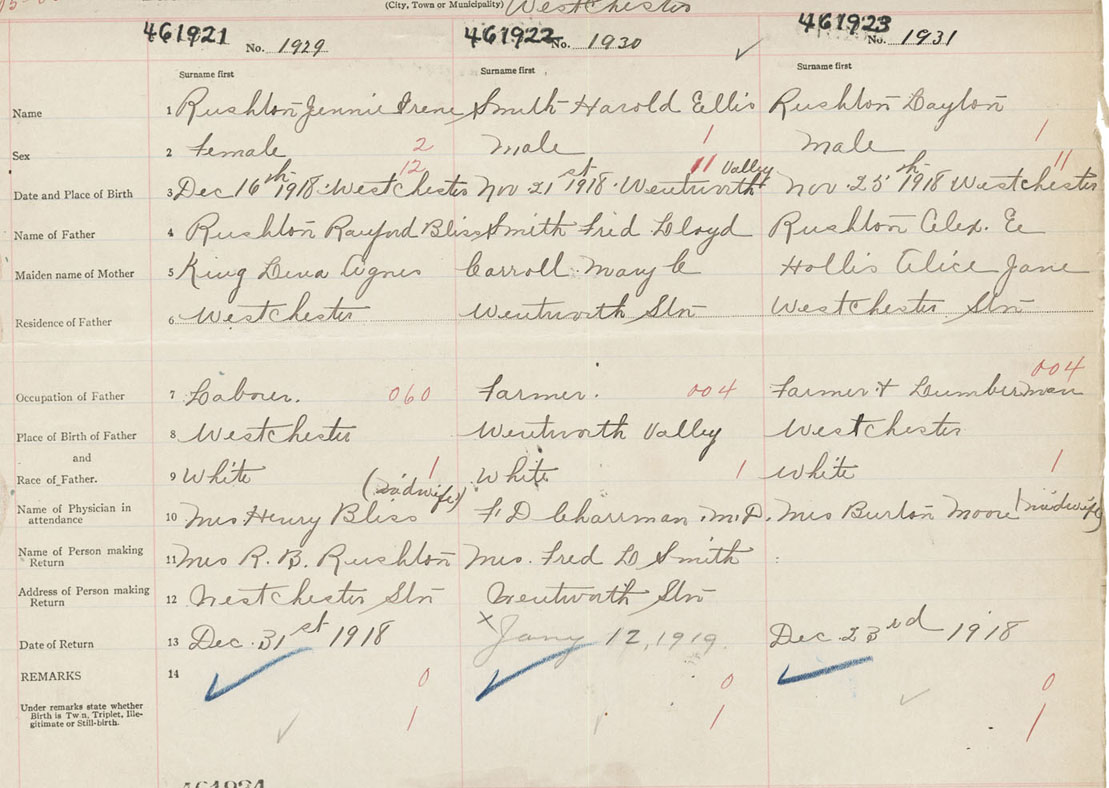 (City, Town or Municipality) Westchester
461921 No. 1929 461922 No. 1930 461923 No. 1931
Surname first Surname first Surname first
Name 1 Rushton Jennie Irene Smith Harold Ellis Rushton Dayton
Sex 2 Female 2 Male 1 Male 1
Date and Place of Birth 3 Dec 16th 1918 Westchester 12 Nov 21st 1918 Wentworth Valley 11 Nov 25th 1918 Westchester 11
Name of Father 4 Rushton Rayford Bliss Smith Fred Lloyd Rushton Alex. E
Maiden name of Mother 5 King Lena Agnes Carroll Mary C Hollis Alice Jane
Residence of Father 6 Westchester Wentworth Stn Westchester Stn
Occupation of Father 7 Labourer. 060 Farmer. 004 Farmer & Lumberman 004
Place of Birth of Father 8 Westchester Wentworth Valley Westchester
and
Race of Father. 9 White 1 White 1 White 1
Name of Physician in attendance 10 Mrs Henry Bliss (midwife) F D Charman M.D. Mrs Burton Moore (midwife)
Name of Person making Return 11 Mrs R. B. Rushton Mrs. Fred L Smith
Address of Person making Return 12 Westchester Stn Wentworth Stn
Date of Return 13 Dec. 31st 1918 x Jany 12, 1919. Dec. 23rd 1918
REMARKS 14 0 0 0
Under remarks state whether Birth is Twin, Triplet, Ille-
gitimate or Still-birth. 1 1 1